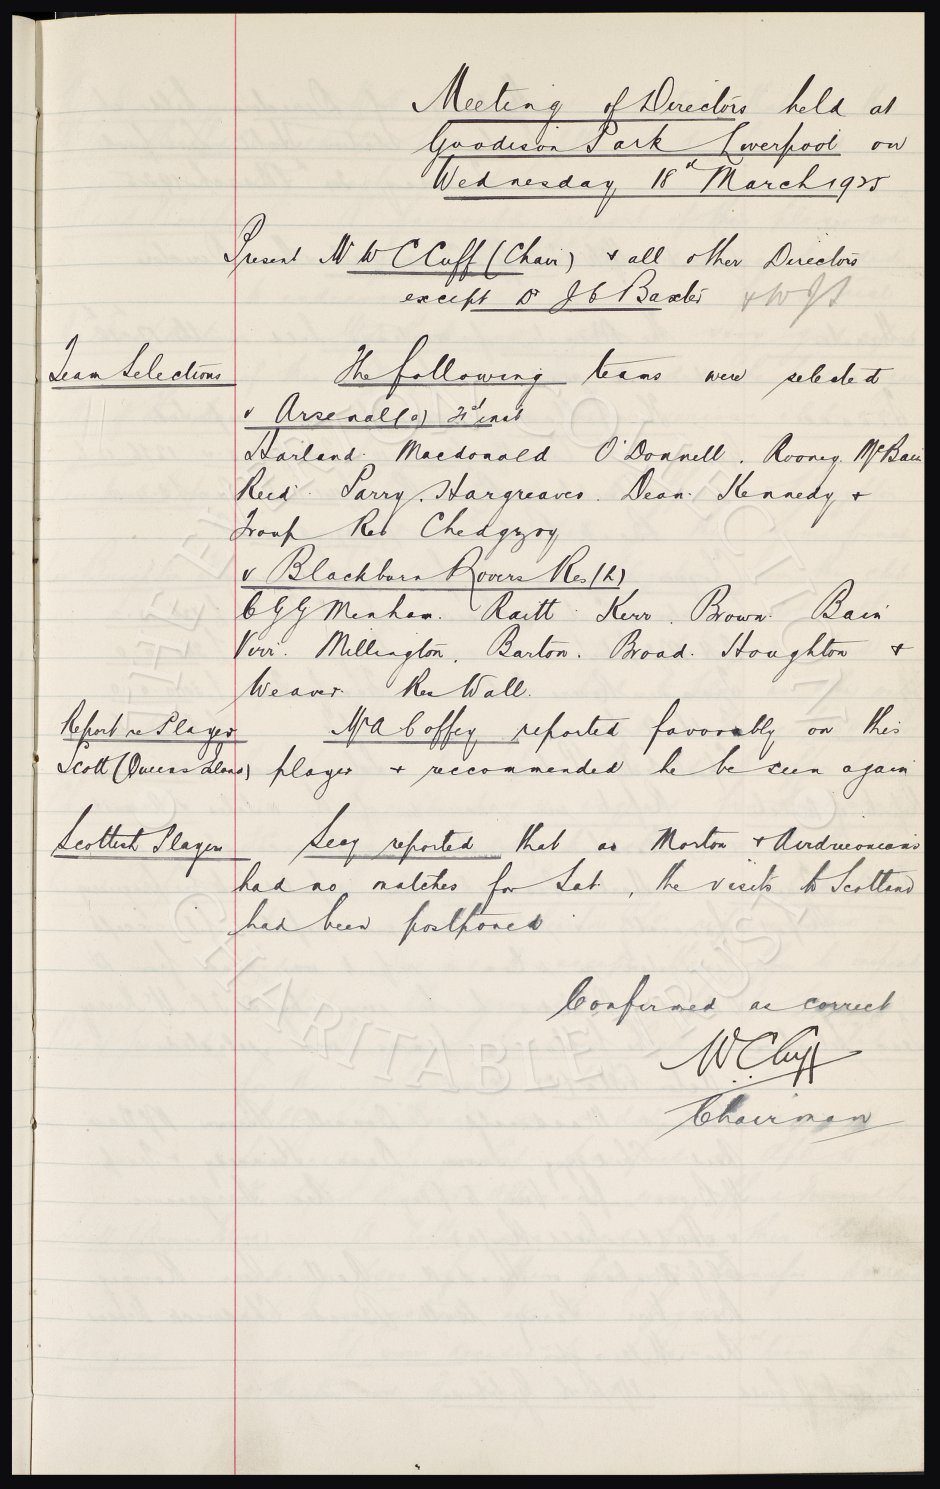 Meeting of Directors held at
Goodison Park Liverpool on
Wednesday 18th March 1925
Present Mr W C Cuff (Chair) & all other Directors
except Dr J C Baxter & W J S
Team Selections The following teams were selected
v Arsenal (a) 21st inst
Harland. Macdonald O'Donnell. Rooney. McBain
Reid. Parry. Hargreaves. Dean. Kennedy &
Troup Res Chedgzoy
v Blackburn Rovers Res (h)
C G G Menham. Raitt. Kerr. Brown. Bain
Virr. Millington. Barton. Broad. Houghton &
Weaver. Res Wall.
Report re Player Mr A Coffey reported favorably on this
Scott (Queens Island) player & reccommended he be seen again
Scottish Players Secy reported that as Morton & Airdrieonians
had no matches for Sat, the visits to Scotland
had been postponed
Confirmed as correct
W C Cuff
Chairman
THE EVERTON COLLECTION
CHARITABLE TRUST